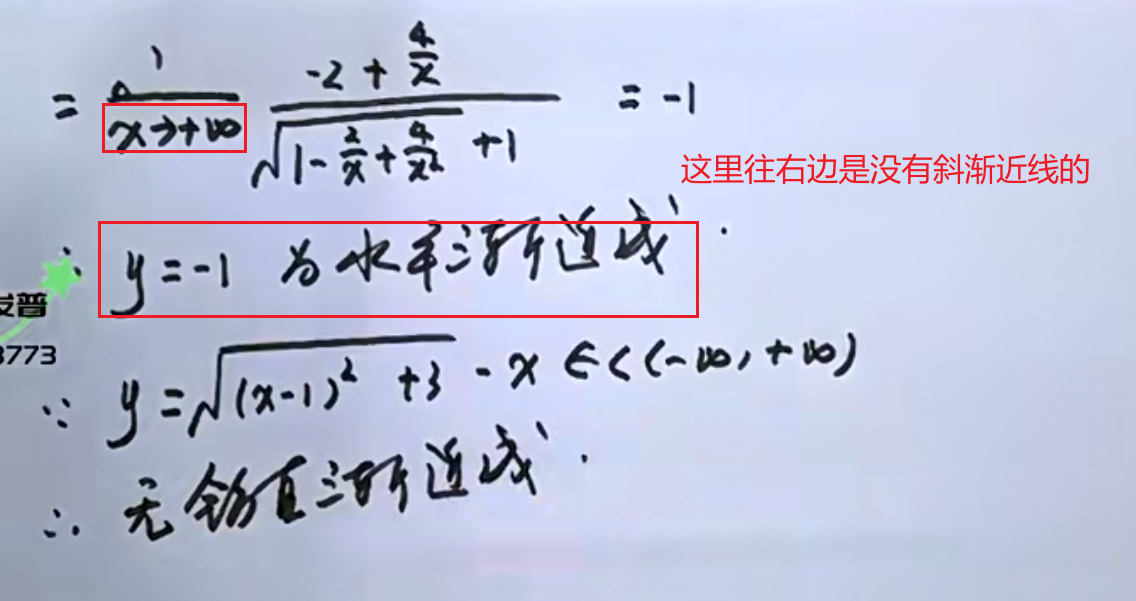 = lim x→+∞ (-2 + 4/x) / (√(1 - 2/x + 4/x²) + 1) = -1
这里往右边是没有斜渐近线的
∴ y = -1 为水平渐近线.
发普
3773
∵ y = √((x-1)² + 3) - x ∈ C(-∞, +∞)
∴ 无铅直渐近线.